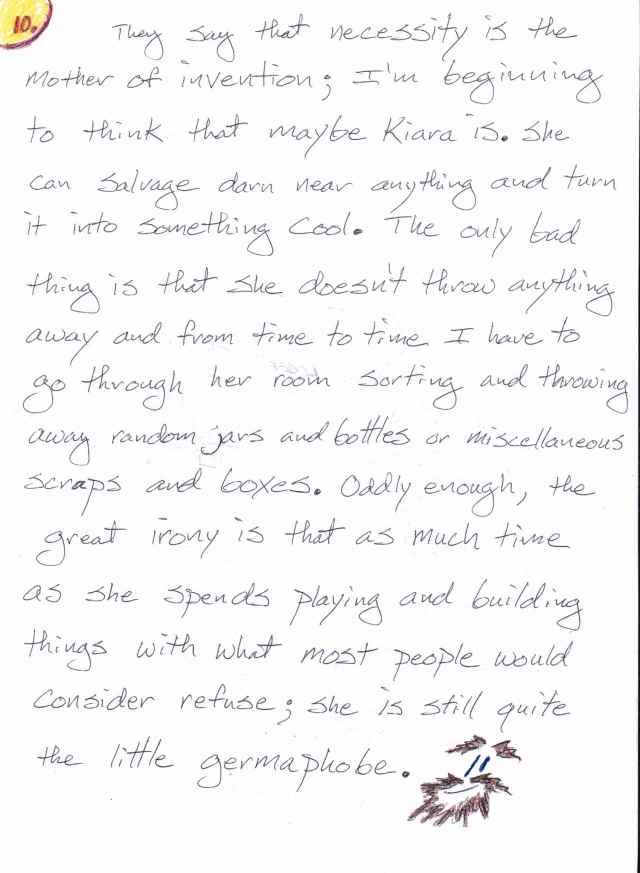 10.
They say that necessity is the
mother of invention; I'm beginning
to think that maybe Kiara is. She
can salvage darn near anything and turn
it into something cool. The only bad
thing is that she doesn't throw anything
away and from time to time I have to
go through her room sorting and throwing
away random jars and bottles or miscellaneous
scraps and boxes. Oddly enough, the
great irony is that as much time
as she spends playing and building
things with what most people would
consider refuse; she is still quite
the little germaphobe.